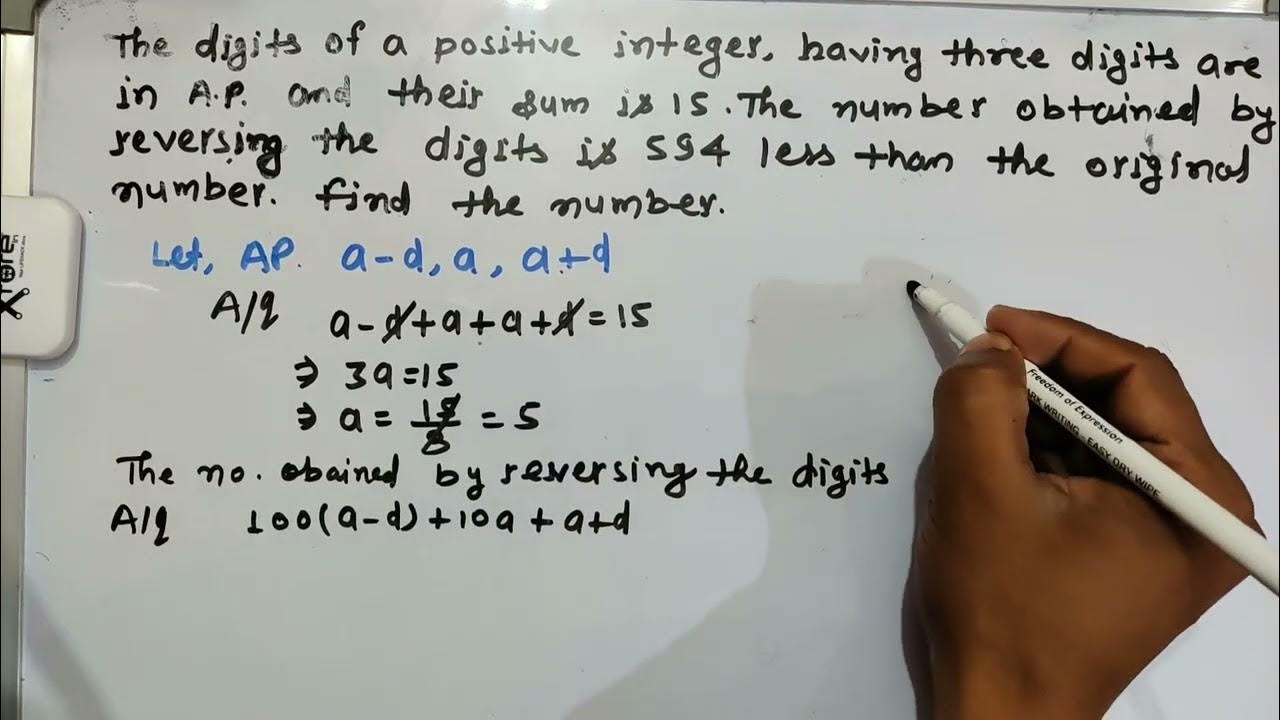 The digits of a positive integer, having three digits are
in A.P. and their sum is 15. The number obtained by
reversing the digits is 594 less than the original
number. find the number.
Let, AP. a-d, a, a+d
A/q a-d+a+a+d=15
⇒ 3a=15
⇒ a = 15/3 = 5
The no. obained by reversing the digits
A/q 100(a-d)+10a+a+d
Freedom of Expression
MARK WRITING - EASY DRY WIPE